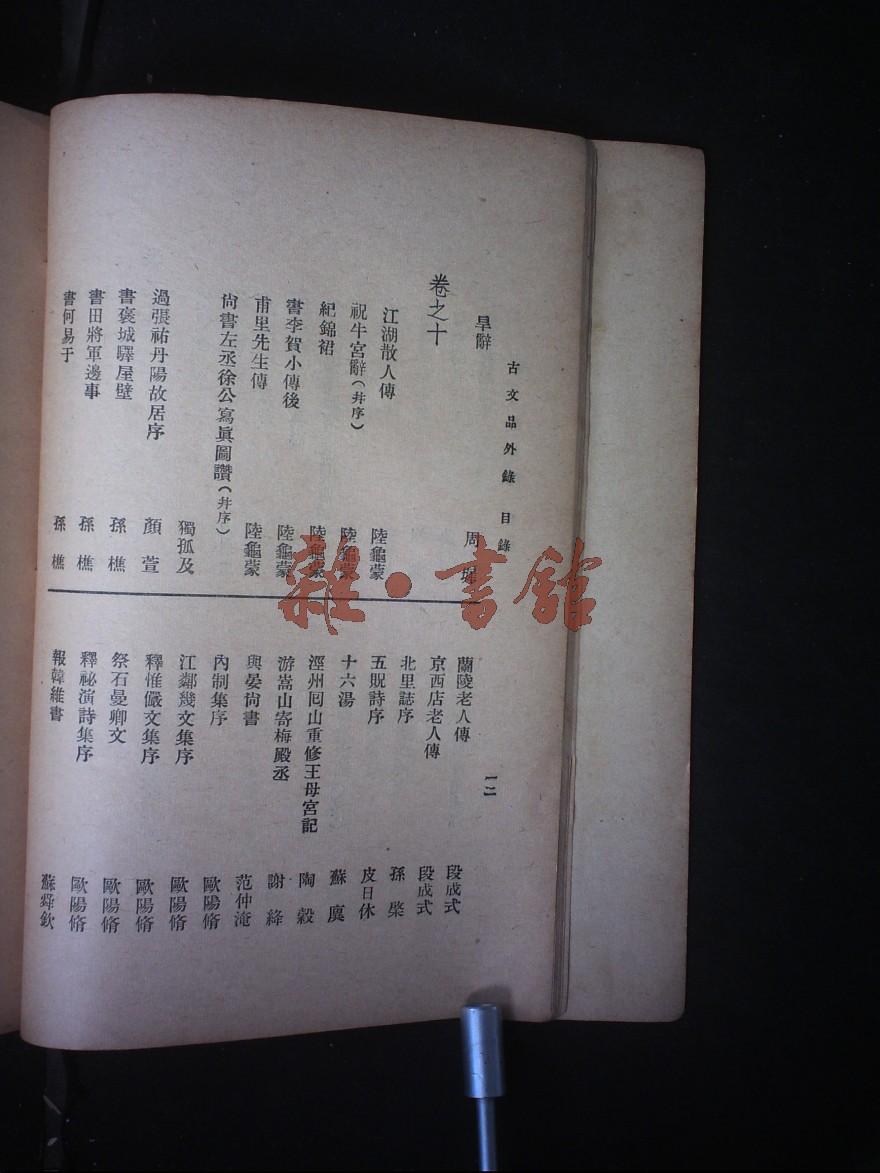 古文品外錄 目錄
一二
旱辭 周
卷之十
江湖散人傳 陸龜蒙
祝牛宮辭(幷序) 陸龜蒙
紀錦裙 陸龜蒙
書李賀小傳後 陸龜蒙
甫里先生傳 陸龜蒙
尙書左丞徐公寫眞圖讚(幷序)
獨孤及
過張祜丹陽故居序 顏萱
書褒城驛屋壁 孫樵
書田將軍邊事 孫樵
書何易于 孫樵
蘭陵老人傳 段成式
京西店老人傳 段成式
北里誌序 孫棨
五貺詩序 皮日休
十六湯 蘇廙
涇州囘山重修王母宮記 陶穀
游嵩山寄梅殿丞 謝絳
與晏尙書 范仲淹
內制集序 歐陽脩
江鄰幾文集序 歐陽脩
釋惟儼文集序 歐陽脩
祭石曼卿文 歐陽脩
釋祕演詩集序 歐陽脩
報韓維書 蘇舜欽
雜·書館